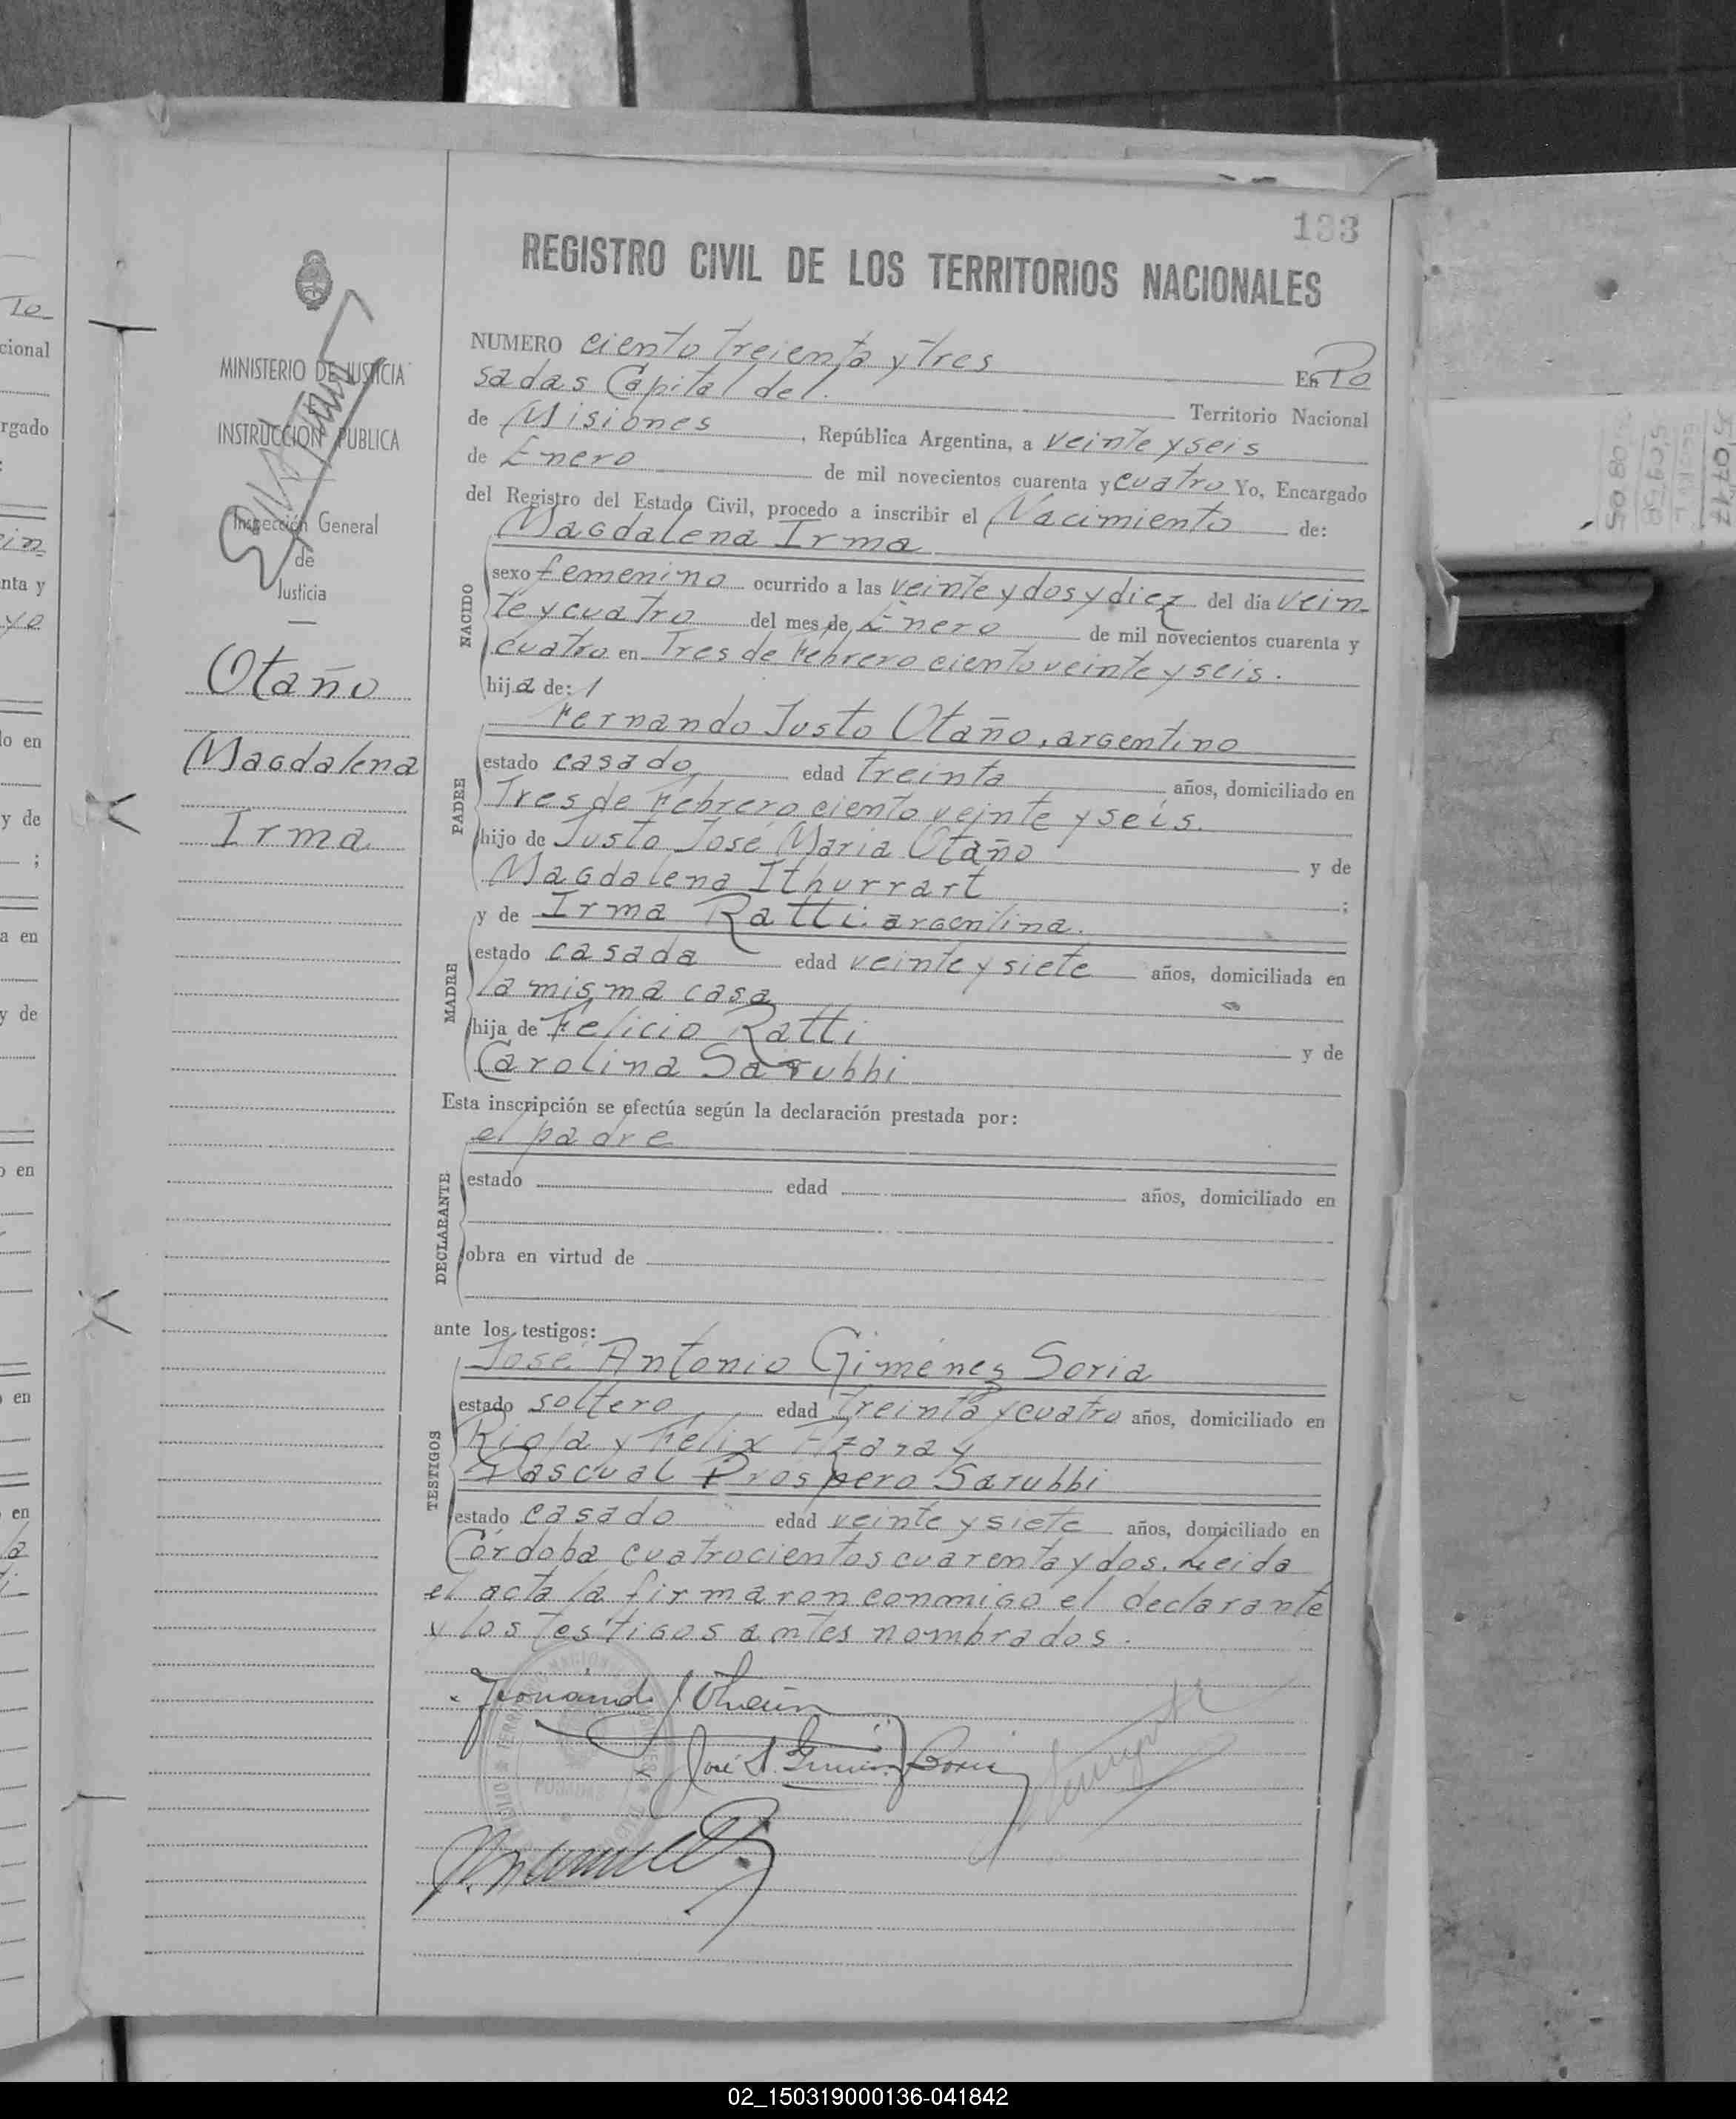 133
REGISTRO CIVIL DE LOS TERRITORIOS NACIONALES
MINISTERIO DE JUSTICIA
E
INSTRUCCIÓN PUBLICA
Inspección General
de
Justicia
Otaño
Magdalena
Irma
NUMERO ciento treienta y tres En Po
sadas Capital del Territorio Nacional
de Misiones, República Argentina, a veinte y seis
de Enero de mil novecientos cuarenta y cuatro Yo, Encargado
del Registro del Estado Civil, procedo a inscribir el Nacimiento de:
NACIDO
Magdalena Irma
sexo femenino ocurrido a las veinte y dos y diez del día vein-
te y cuatro del mes de Enero de mil novecientos cuarenta y
cuatro en Tres de Febrero ciento veinte y seis.
hija de:
PADRE
Fernando Justo Otaño, argentino
estado casado edad treinta años, domiciliado en
Tres de Febrero ciento veinte y seis.
hijo de Justo José María Otaño y de
Magdalena Ithurrart ;
MADRE
y de Irma Ratti. argentina.
estado casada edad veinte y siete años, domiciliada en
la misma casa
hija de Felicio Ratti y de
Carolina Sarubbi
Esta inscripción se efectúa según la declaración prestada por:
DECLARANTE
el padre
estado edad años, domiciliado en
obra en virtud de
ante los testigos:
TESTIGOS
José Antonio Giménez Soria
estado soltero edad treinta y cuatro años, domiciliado en
Rioja y Felix Azara y
Pascual Prospero Sarubbi
estado casado edad veinte y siete años, domiciliado en
Córdoba cuatrocientos cuarenta y dos. Leida
el acta la firmaron conmigo el declarante
y los testigos antes nombrados.
POSADAS
50805
50958
50747
02_150319000136-041842